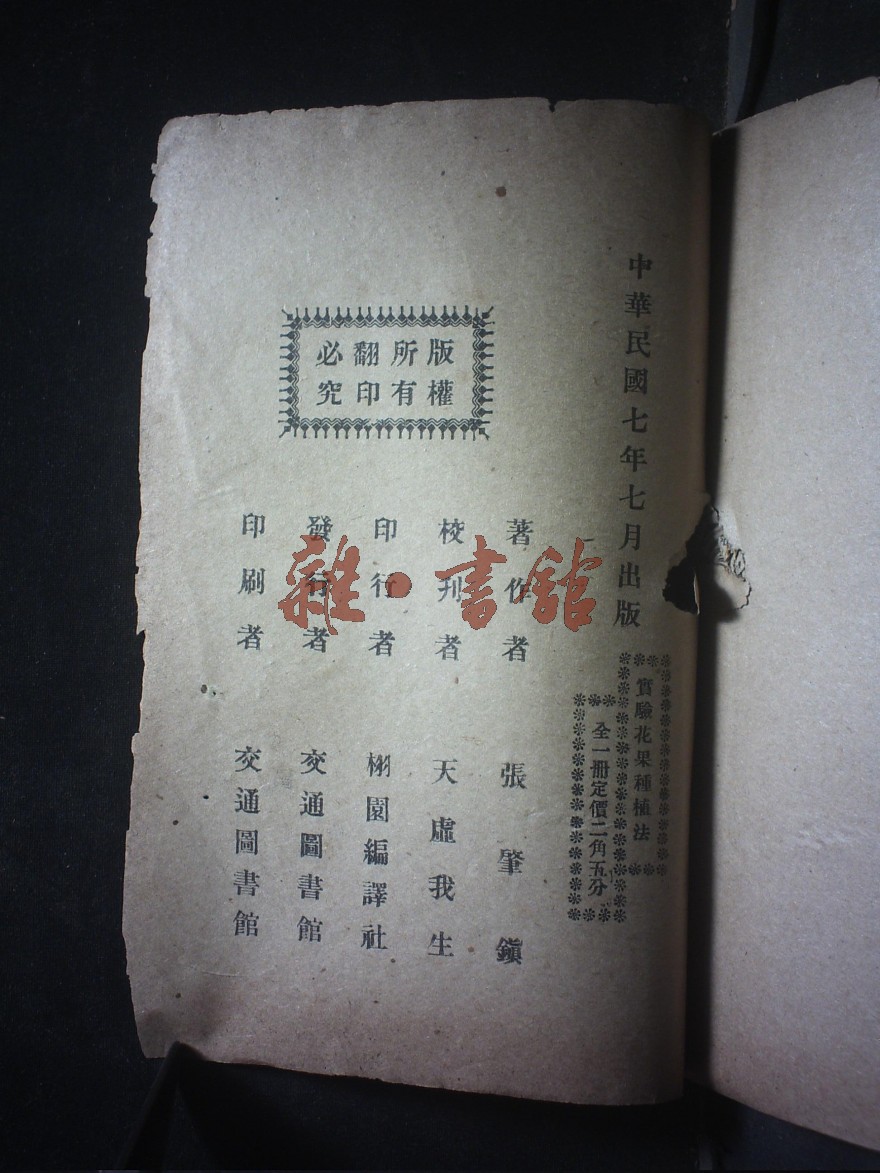 中華民國七年七月出版
實驗花果種植法
全一冊定價二角五分
版權
所有
翻印
必究
著作者 張肇鎭
校刊者 天虛我生
印行者 栩園編譯社
發行者 交通圖書館
印刷者 交通圖書館
雜·書館